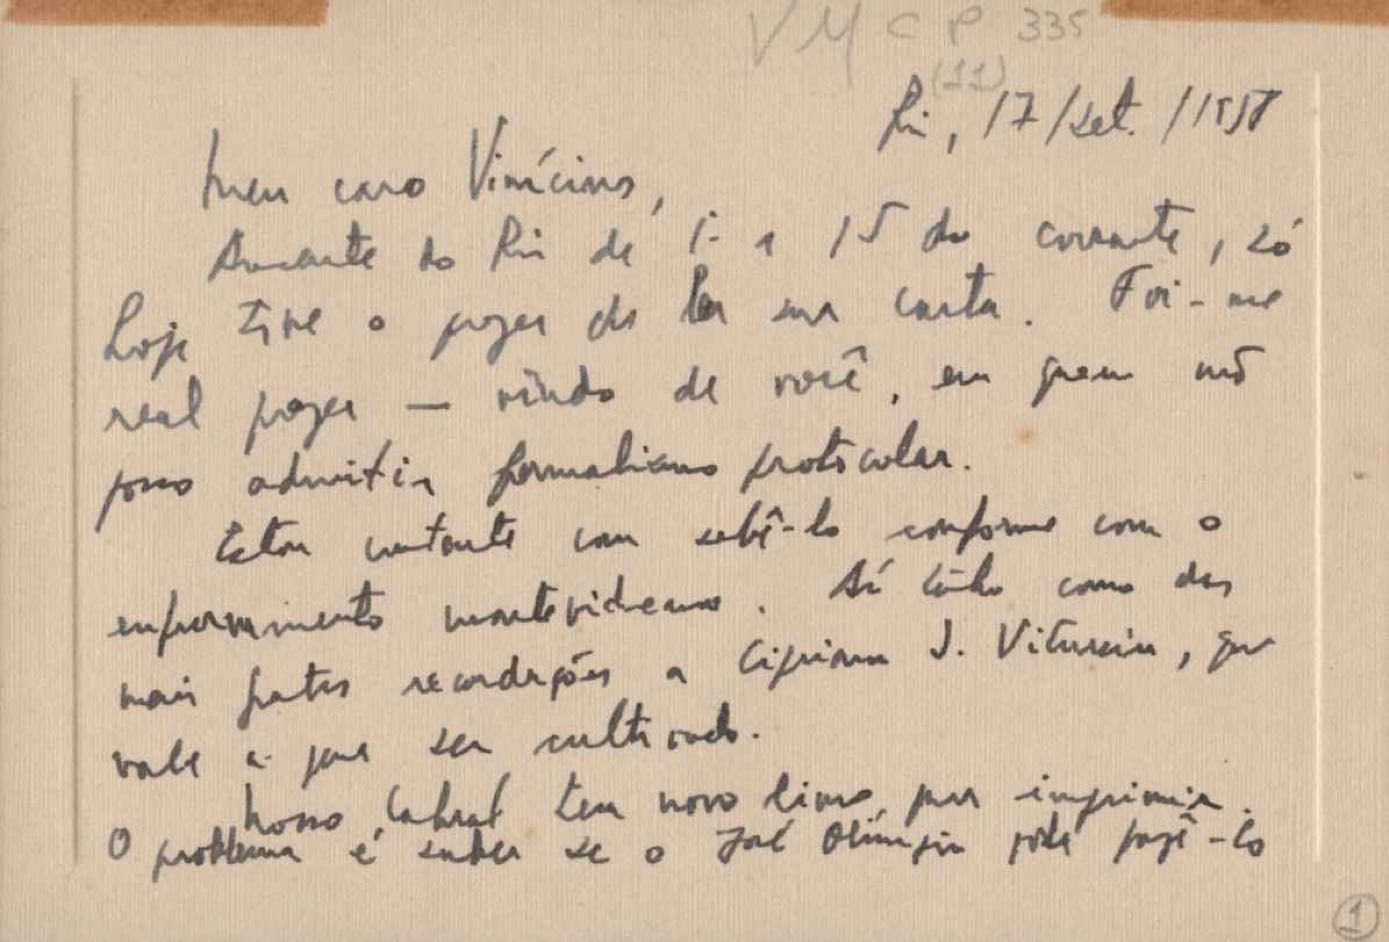 VM CP 335
(11)
Rio, 17/set./1958
Meu caro Vinícius,
Ausente do Rio de 1º a 15 do corrente, só
hoje tive o prazer de ler sua carta. Foi-me
real prazer — vindo de você, em quem não
posso admitir formalismo protocolar.
Estou contente com sabê-lo conforme com o
enfurnamento montevideano. Aí tenho como das
mais gratas recordações a Cipriano S. Vitureira, que
vale a pena ser cultivado.
Nosso Cabral tem novo livro, por imprimir.
O problema é saber se o José Olímpio pode fazê-lo
1